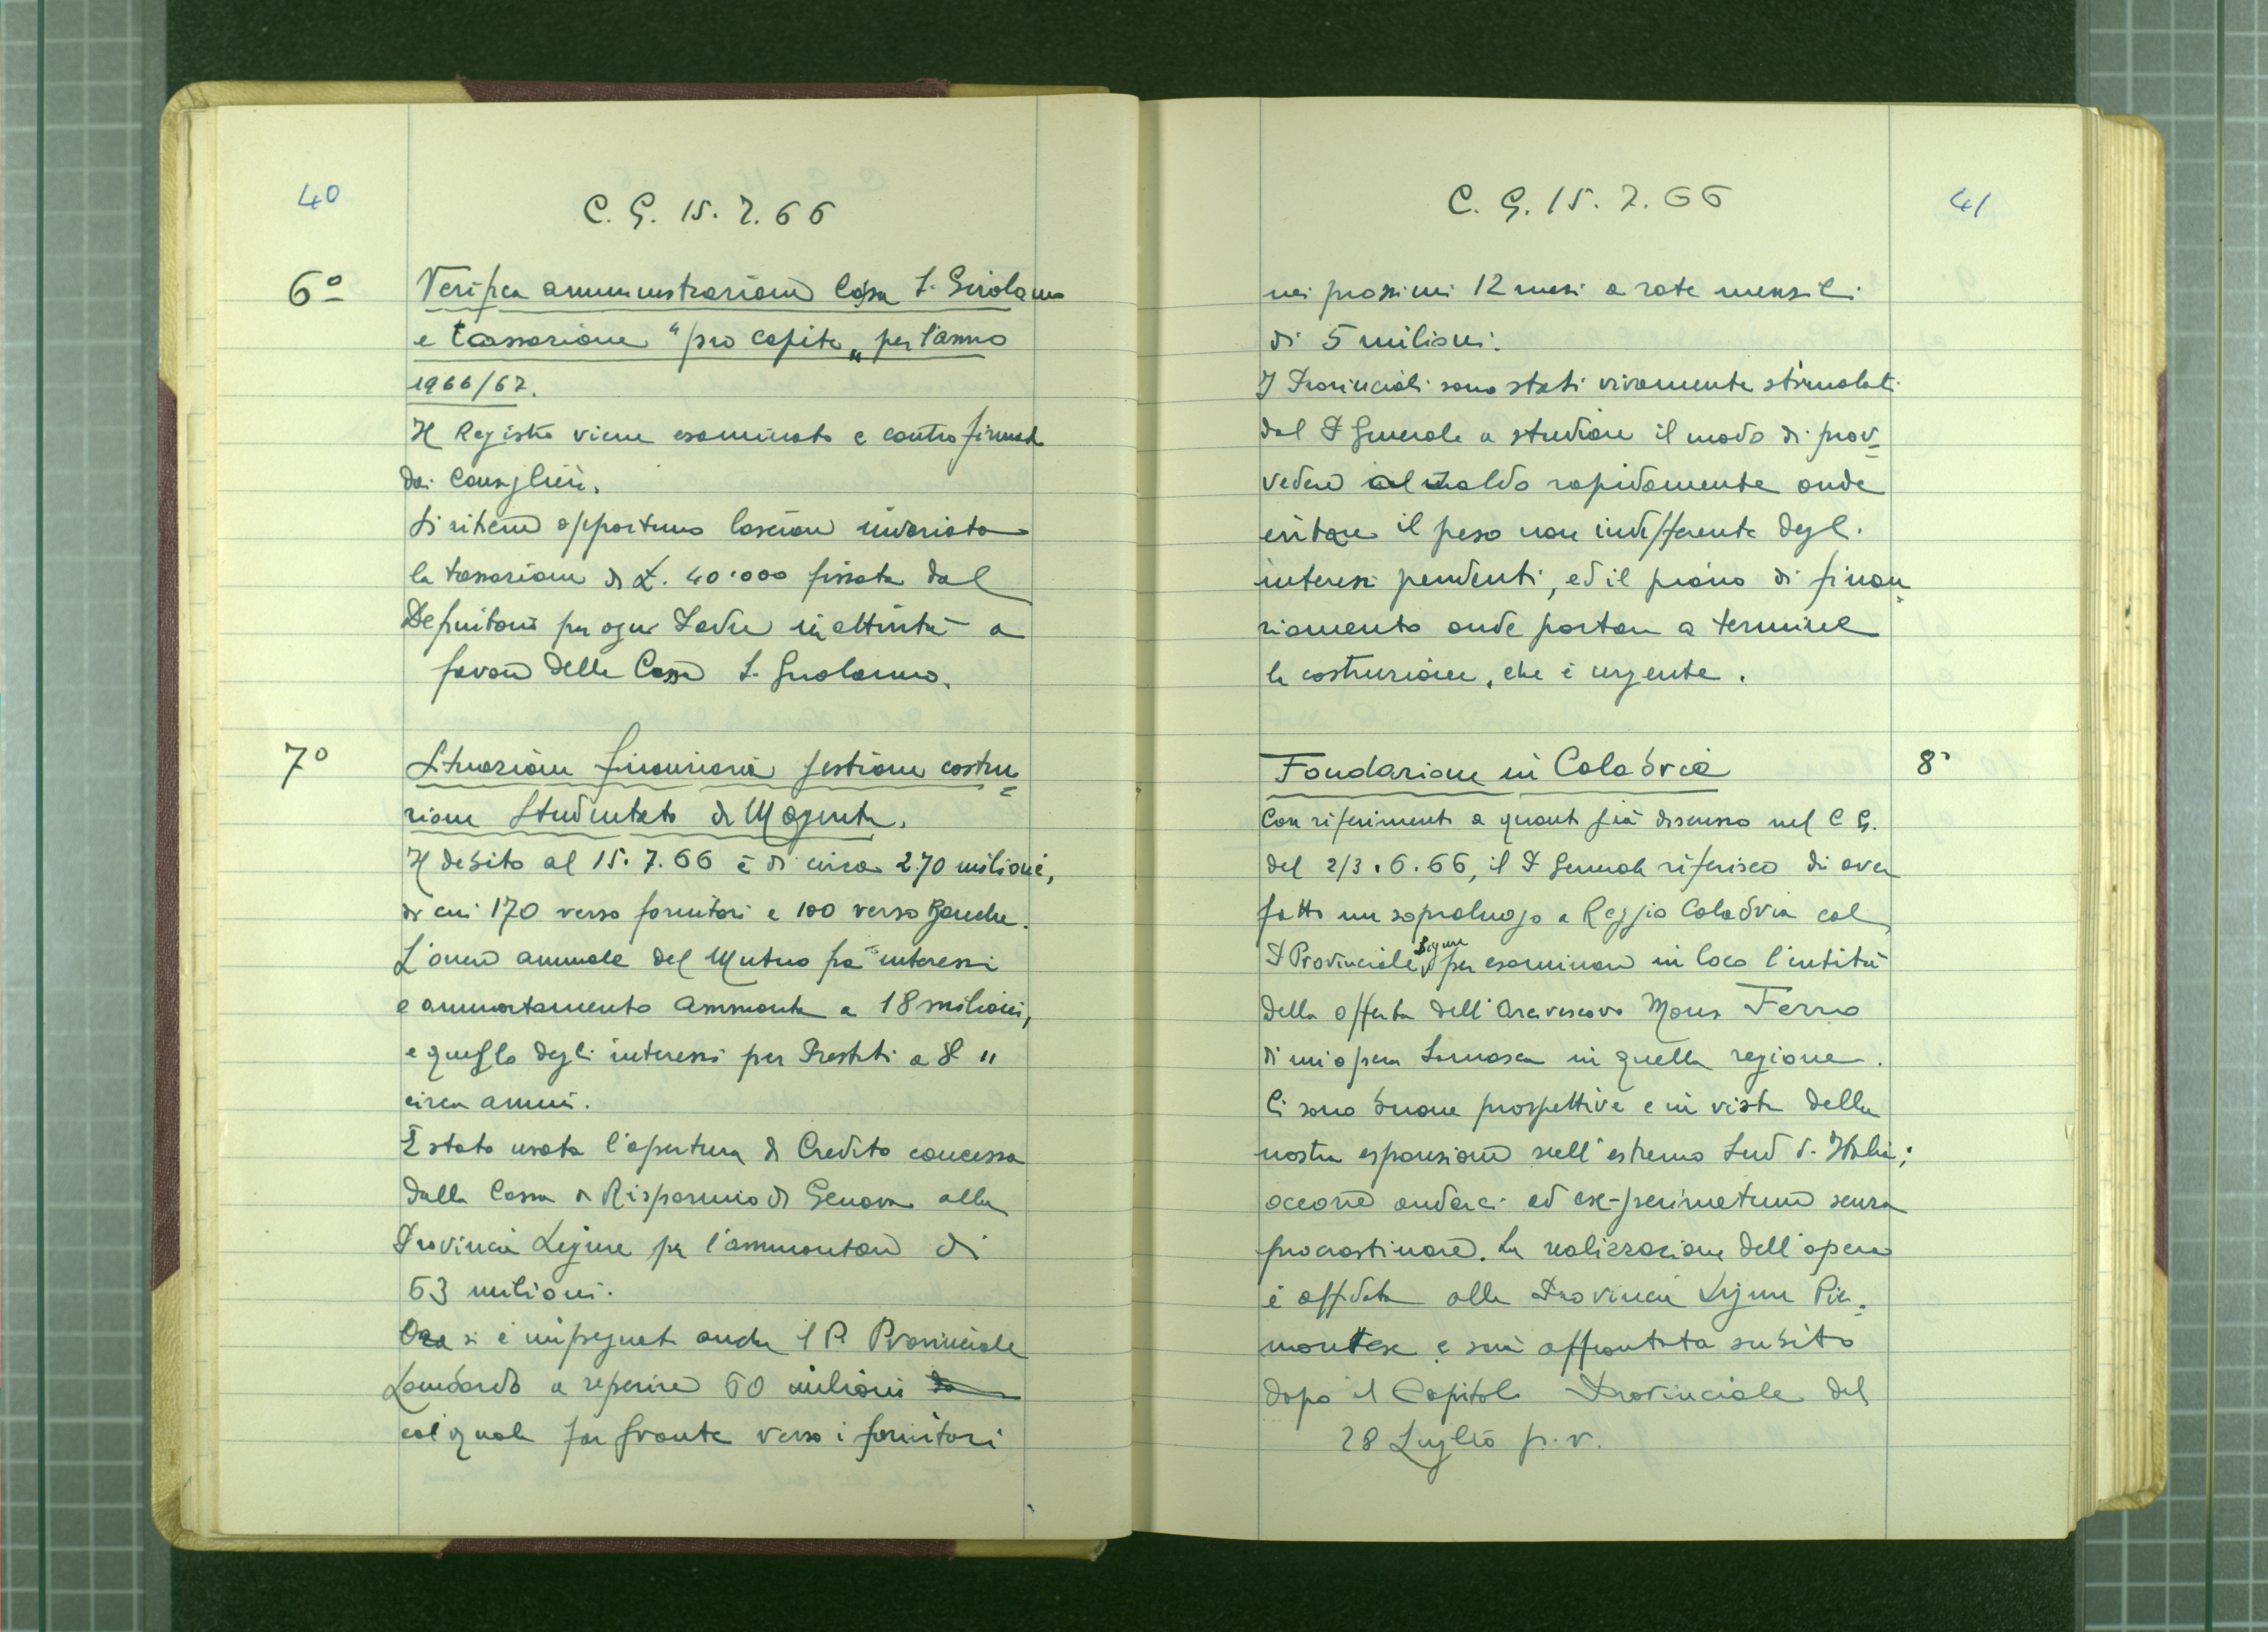 40
C. G. 15. 7. 66
6º
Verifica amministrazione Cassa S. Girolamo
e tassazione "pro capite" per l'anno
1966/67.
Il Registro viene esaminato e controfirmato
dai Consiglieri.
Si ritiene opportuno lasciare invariata
la tassazione di £. 40.000 fissata dal
Definitorio per ogni Padre in attività a
favore della Cassa S. Girolamo.
7º
Situazione finanziaria gestione costru=
zione Studentato di Magenta.
Il debito al 15. 7. 66 è di circa 270 milioni,
di cui 170 verso fornitori e 100 verso Banche.
L'onere annuale del Mutuo fra interessi
e ammortamento ammonta a 18 milioni,
e quello degli interessi per Prestiti a 8 "
circa annui.
È stata usata l'apertura di Credito concessa
dalla Cassa di Risparmio di Genova alla
Provincia Ligure per l'ammontare di
63 milioni.
Ora si è impegnato anche il P. Provinciale
Lombardo a reperire 60 milioni da
col quale far fronte verso i fornitori
C. G. 15. 7. 66
41
nei prossimi 12 mesi a rate mensili
di 5 milioni.
I Provinciali sono stati vivamente stimolati
dal P Generale a studiare il modo di prov=
vedere al saldo rapidamente onde
evitare il peso non indifferente degli
interessi pendenti, ed il piano di finan=
ziamento onde portare a termine
la costruzione, che è urgente.
Fondazione in Calabria
8º
Con riferimento a quanto già discusso nel C G.
del 2/3. 6. 66, il P Generale riferisce di aver
fatto un sopraluogo a Reggio Calabria col
P Provinciale Ligure per esaminare in loco l'entità
della offerta dell'Arcivescovo Mons Ferro
di un'opera Somasca in quella regione.
Ci sono buone prospettive e in vista della
nostra espansione nell'estremo Sud d'Italia;
occorre andarci ad experimetum senza
procrastinare. La realizzazione dell'opera
è affidata alla Provincia Ligure Pie=
montese e sarà affrontata subito
dopo il Capitolo Provinciale del
28 Luglio p.v.